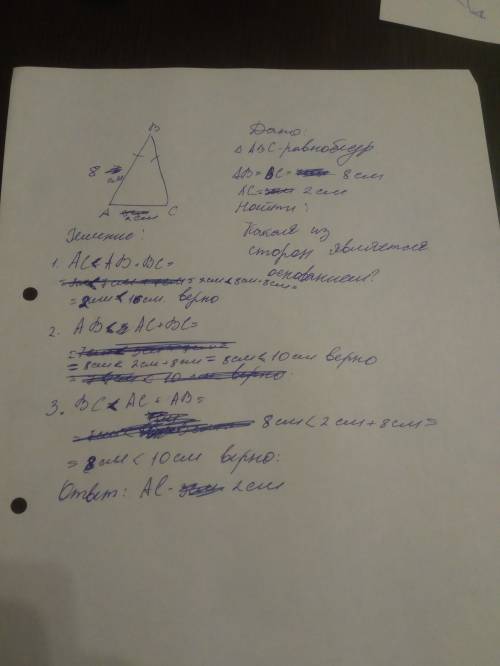 B
8 см
A 2см C
Дано:
Δ ABC - равнобедр
AB = BC = 8 см
AC = 2 см
Найти:
Какая из
сторон является
основанием?
Решение:
1. AC < AB + BC =
= 2см < 8см + 8см =
= 2см < 16см. верно
2. AB < AC + BC =
= 8см < 2см + 8см = 8см < 10см верно
3. BC < AC + AB =
8см < 2см + 8см =
= 8см < 10см верно:
Ответ: AC - 2см